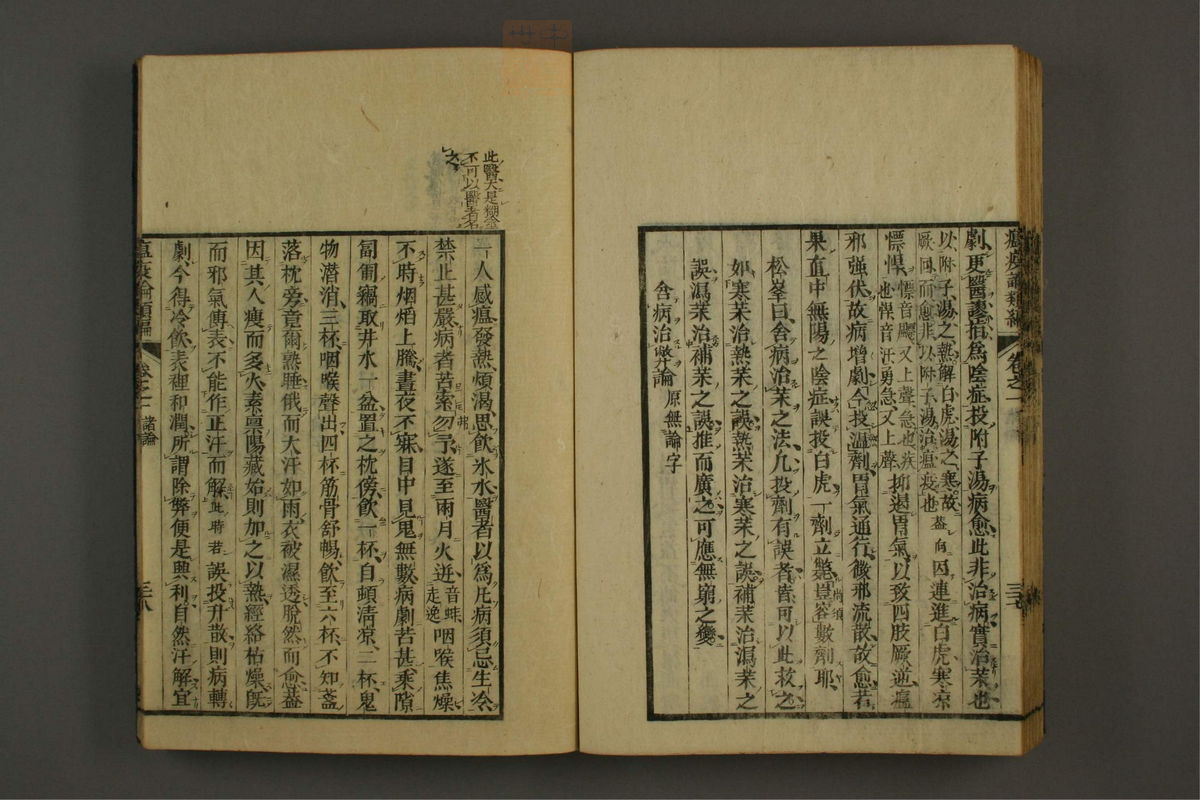 瘟疫論類編 卷之二 三七
劇更醫謬指爲陰症投附子湯病愈此非治病實治藥也
以附子湯之熱解白虎湯之寒故
厥回而愈非以附子湯治瘟疫也
盖向因連進白虎寒凉
慓悍
慓音飄又上聲急也疾
也悍音汗勇急又上聲
抑遏胃氣以致四肢厥逆瘟
邪强伏故病增劇今投溫劑胃氣通行微邪流散故愈者
果直中無陽之陰症誤投白虎一劑立斃豈容數劑耶
松峯曰舍病治藥之法凢投劑有誤者皆可以此救之
如寒藥治熱藥之誤熱藥治寒藥之誤補藥治瀉藥之
誤瀉藥治補藥之誤推而廣之可應無窮之變
舍病治弊論 原無論字
此醫大是糊塗
不可以醫者名
之
一人感瘟發熱煩渴思飮氷水醫者以爲凢病須忌生冷
禁止甚嚴病者苦索勿予遂至兩目火迸
音蚌
走逸
咽喉焦燥
不時烟熖上騰晝夜不寐目中見鬼無數病劇苦甚乘隙
匍匐竊取井水一盆置之枕傍飮一杯自頓清凉二杯鬼
物潛消三杯咽喉聲出四杯筋骨舒暢飮至六杯不知盞
落枕旁竟爾熟睡俄而大汗如雨衣被濕透脫然而愈盖
因其人瘦而多火素禀陽藏始則加之以熱經絡枯燥旣
而邪氣傳表不能作正汗而解此時若誤投升散則病轉
劇今得冷飮表裡和潤所謂除弊便是興利自然汗解宜
瘟疫論類編 卷之二 諸論 三八